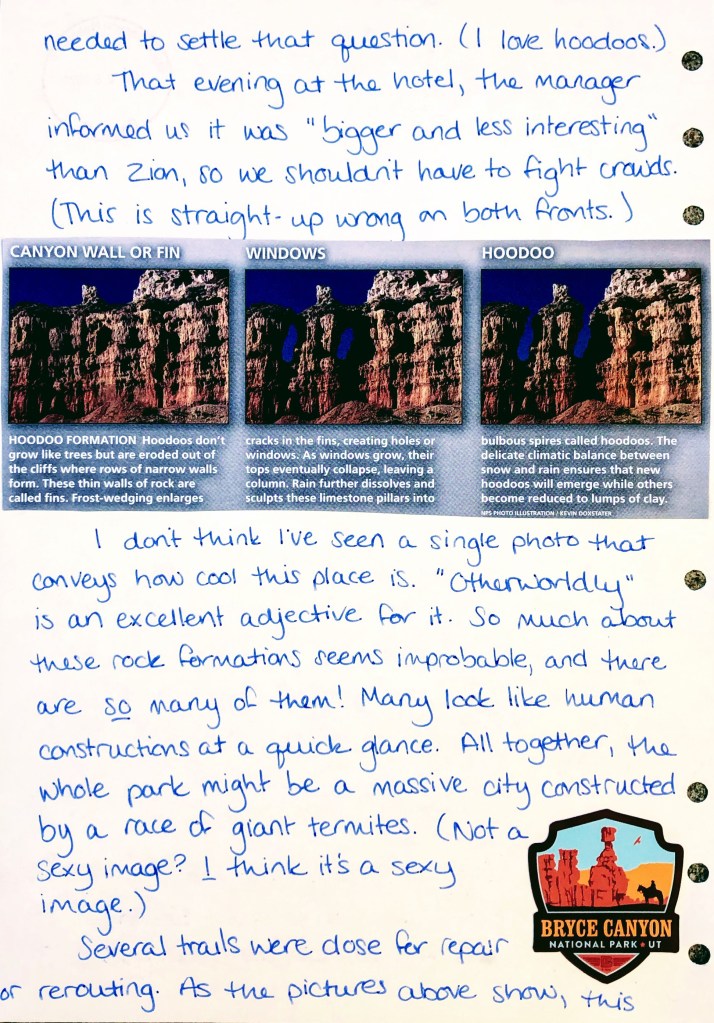 needed to settle that question. (I love hoodoos.)
That evening at the hotel, the manager
informed us it was "bigger and less interesting"
than Zion, so we shouldn't have to fight crowds.
(This is straight-up wrong on both fronts.)
CANYON WALL OR FIN
HOODOO FORMATION Hoodoos don't
grow like trees but are eroded out of
the cliffs where rows of narrow walls
form. These thin walls of rock are
called fins. Frost-wedging enlarges
WINDOWS
cracks in the fins, creating holes or
windows. As windows grow, their
tops eventually collapse, leaving a
column. Rain further dissolves and
sculpts these limestone pillars into
HOODOO
bulbous spires called hoodoos. The
delicate climatic balance between
snow and rain ensures that new
hoodoos will emerge while others
become reduced to lumps of clay.
NPS PHOTO ILLUSTRATION / KEVIN DOXSTATER
I don't think I've seen a single photo that
conveys how cool this place is. "Otherworldly"
is an excellent adjective for it. So much about
these rock formations seems improbable, and there
are so many of them! Many look like human
constructions at a quick glance. All together, the
whole park might be a massive city constructed
by a race of giant termites. (Not a
sexy image? I think it's a sexy
image.)
BRYCE CANYON
NATIONAL PARK UT
Several trails were close for repair
or rerouting. As the pictures above show, this